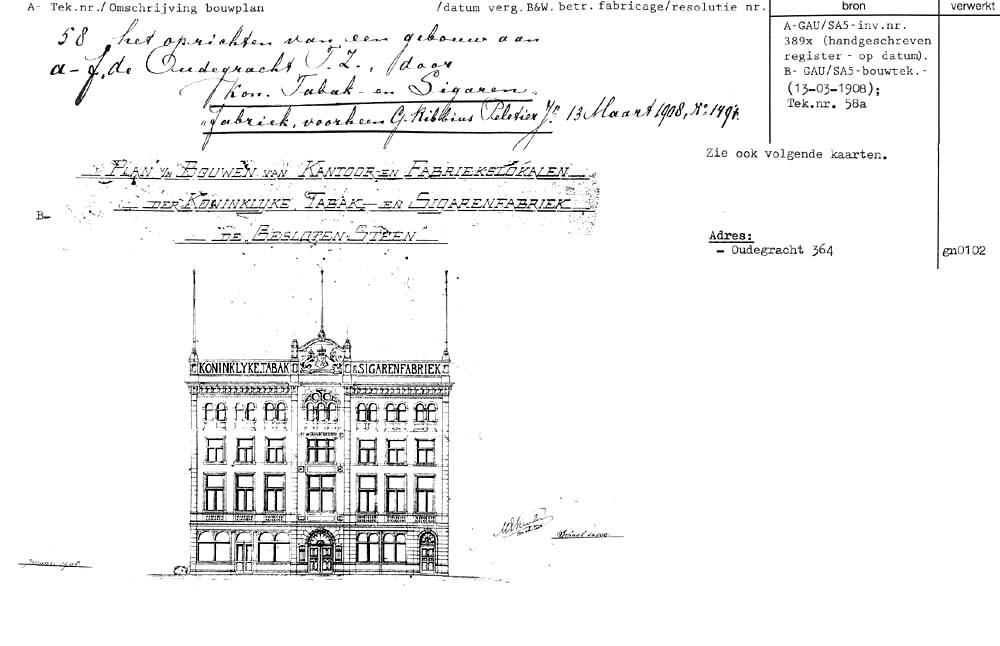 A- Tek.nr./Omschrijving bouwplan /datum verg.B&W. betr. fabricage/resolutie nr. bron verwerkt
58 het oprichten van een gebouw aan
a-f. de Oudegracht T.Z., door
Kon. Tabak- en Sigaren-
fabriek, voorheen G. Ribbius Peletier Jr. 13 Maart 1908, No. 1491.
A-GAU/SA5-inv.nr.
389x (handgeschreven
register - op datum).
B- GAU/SA5-bouwtek.-
(13-03-1908);
Tek.nr. 58a
Zie ook volgende kaarten.
B-
"PLAN V/H BOUWEN VAN KANTOOR-EN FABRIEKSLOKALEN
DER KONINKLYKE TABAK- EN SIGARENFABRIEK
DE BESLOTEN STEEN"
Adres:
- Oudegracht 364
gn0102
KONINKLYKE.TABAK & SIGARENFABRIEK
Januari 1908